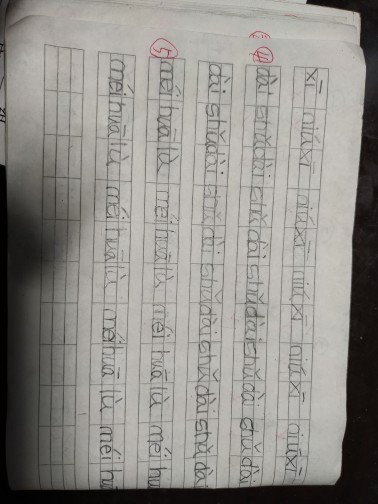 xī niúxī niúxī niúxī niúxī niúxī
④ dài shǔdài shǔdài shǔdài shǔdài shǔdài
dài shǔdài shǔdài shǔdài shǔdài shǔdài
⑤ méihuālù méihuālù méihuālù méihu
méihuālù méihuālù méihuālù méihu